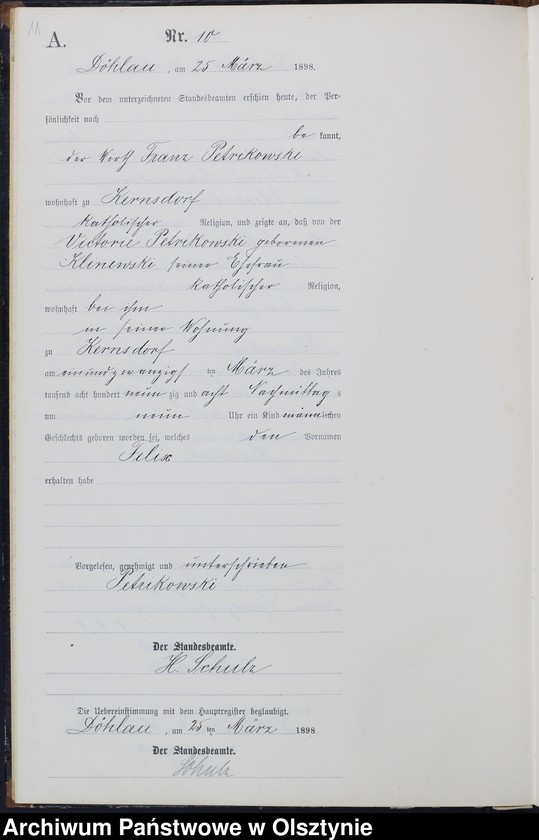 11
A.
Nr. 10
Döhlau, am 25 März 1898.
Vor dem unterzeichneten Standesbeamten erschien heute, der Per-
sönlichkeit nach
be kannt,
der Wirth Franz Petrikowski
wohnhaft zu Kernsdorf
katholischer Religion, und zeigte an, daß von der
Victorie Petrikowski geborenen
Klinewski seiner Ehefrau
katholischer Religion,
wohnhaft bei ihm
in seiner Wohnung
zu Kernsdorf
am einundzwanzigsten März des Jahres
tausend acht hundert neunzig und acht Nachmittags
um neun Uhr ein Kind männlichen
Geschlechts geboren worden sei, welches den Vornamen
Felix
erhalten habe
Vorgelesen, genehmigt und unterschrieben
Petrikowski
Der Standesbeamte.
H. Schulz
Die Uebereinstimmung mit dem Hauptregister beglaubigt.
Döhlau, am 25 ten März 1898
Der Standesbeamte.
Schulz
Archiwum Państwowe w Olsztynie